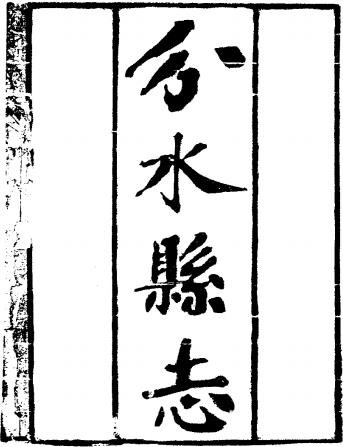 分水縣志